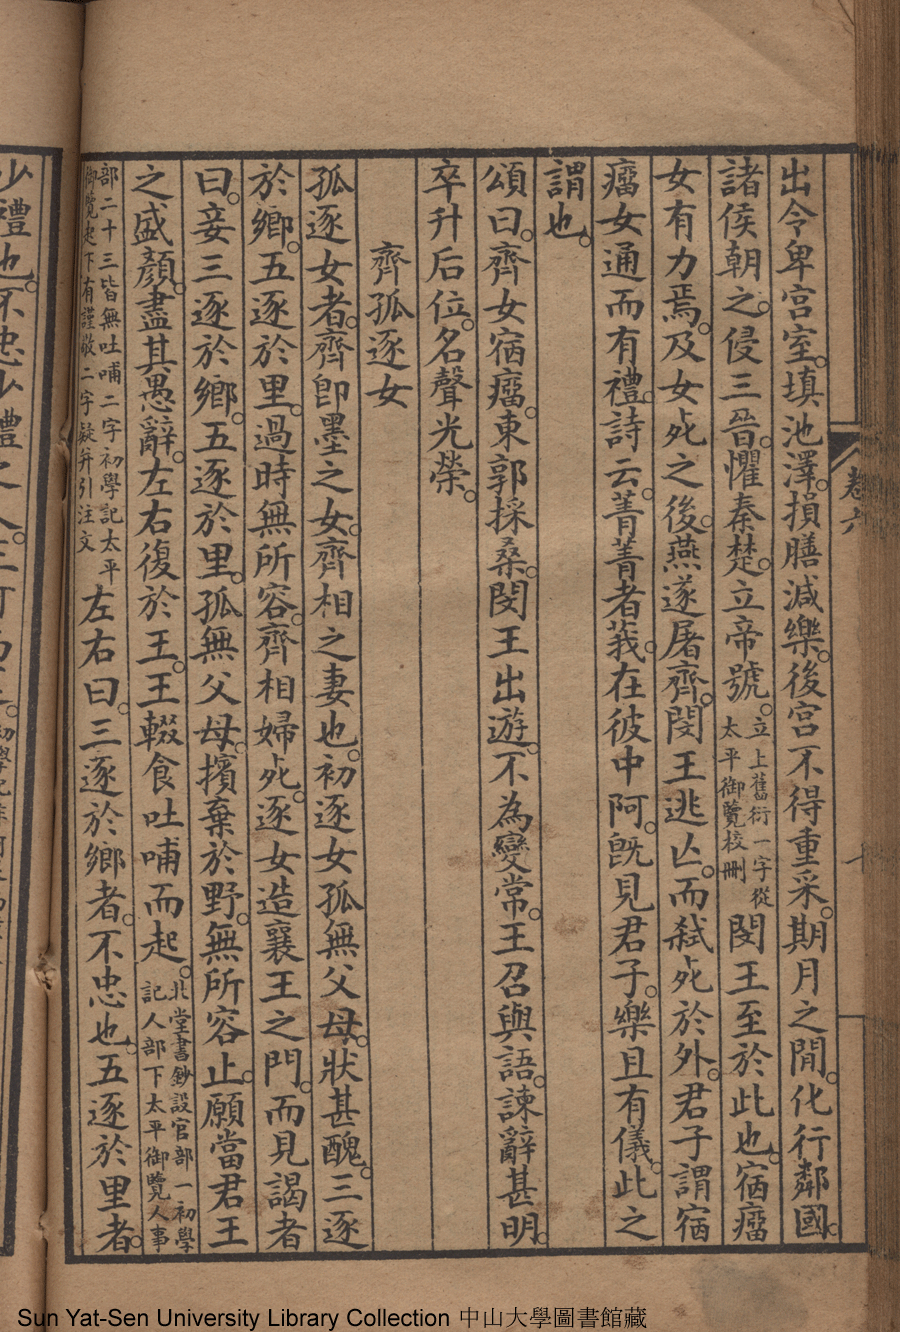 出令卑宮室。填池澤。損膳減樂。後宮不得重采。期月之閒。化行鄰國。
諸侯朝之。侵三晉。懼秦楚。立帝號。立上舊衍一字從太平御覽校刪閔王至於此也。宿瘤
女有力焉。及女死之後。燕遂屠齊。閔王逃亡。而弒死於外。君子謂宿
瘤女通而有禮。詩云。菁菁者莪。在彼中阿。旣見君子。樂且有儀。此之
謂也。
頌曰。齊女宿瘤。東郭採桑。閔王出遊。不為變常。王召與語。諫辭甚明。
卒升后位。名聲光榮。
齊孤逐女
孤逐女者。齊卽墨之女。齊相之妻也。初逐女孤無父母。狀甚醜。三逐
於鄉。五逐於里。過時無所容。齊相婦死。逐女造襄王之門。而見謁者
曰。妾三逐於鄉。五逐於里。孤無父母。擯棄於野。無所容止。願當君王
之盛顏。盡其愚辭。左右復於王。王輟食吐哺而起。北堂書鈔設官部一初學記人部下太平御覽人事
部二十三皆無吐哺二字初學記太平御覽史下有謹敬二字疑幷引注文左右曰。三逐於鄉者。不忠也。五逐於里者。
少禮也。不忠少禮之人。
卷六
Sun Yat-Sen University Library Collection 中山大學圖書館藏